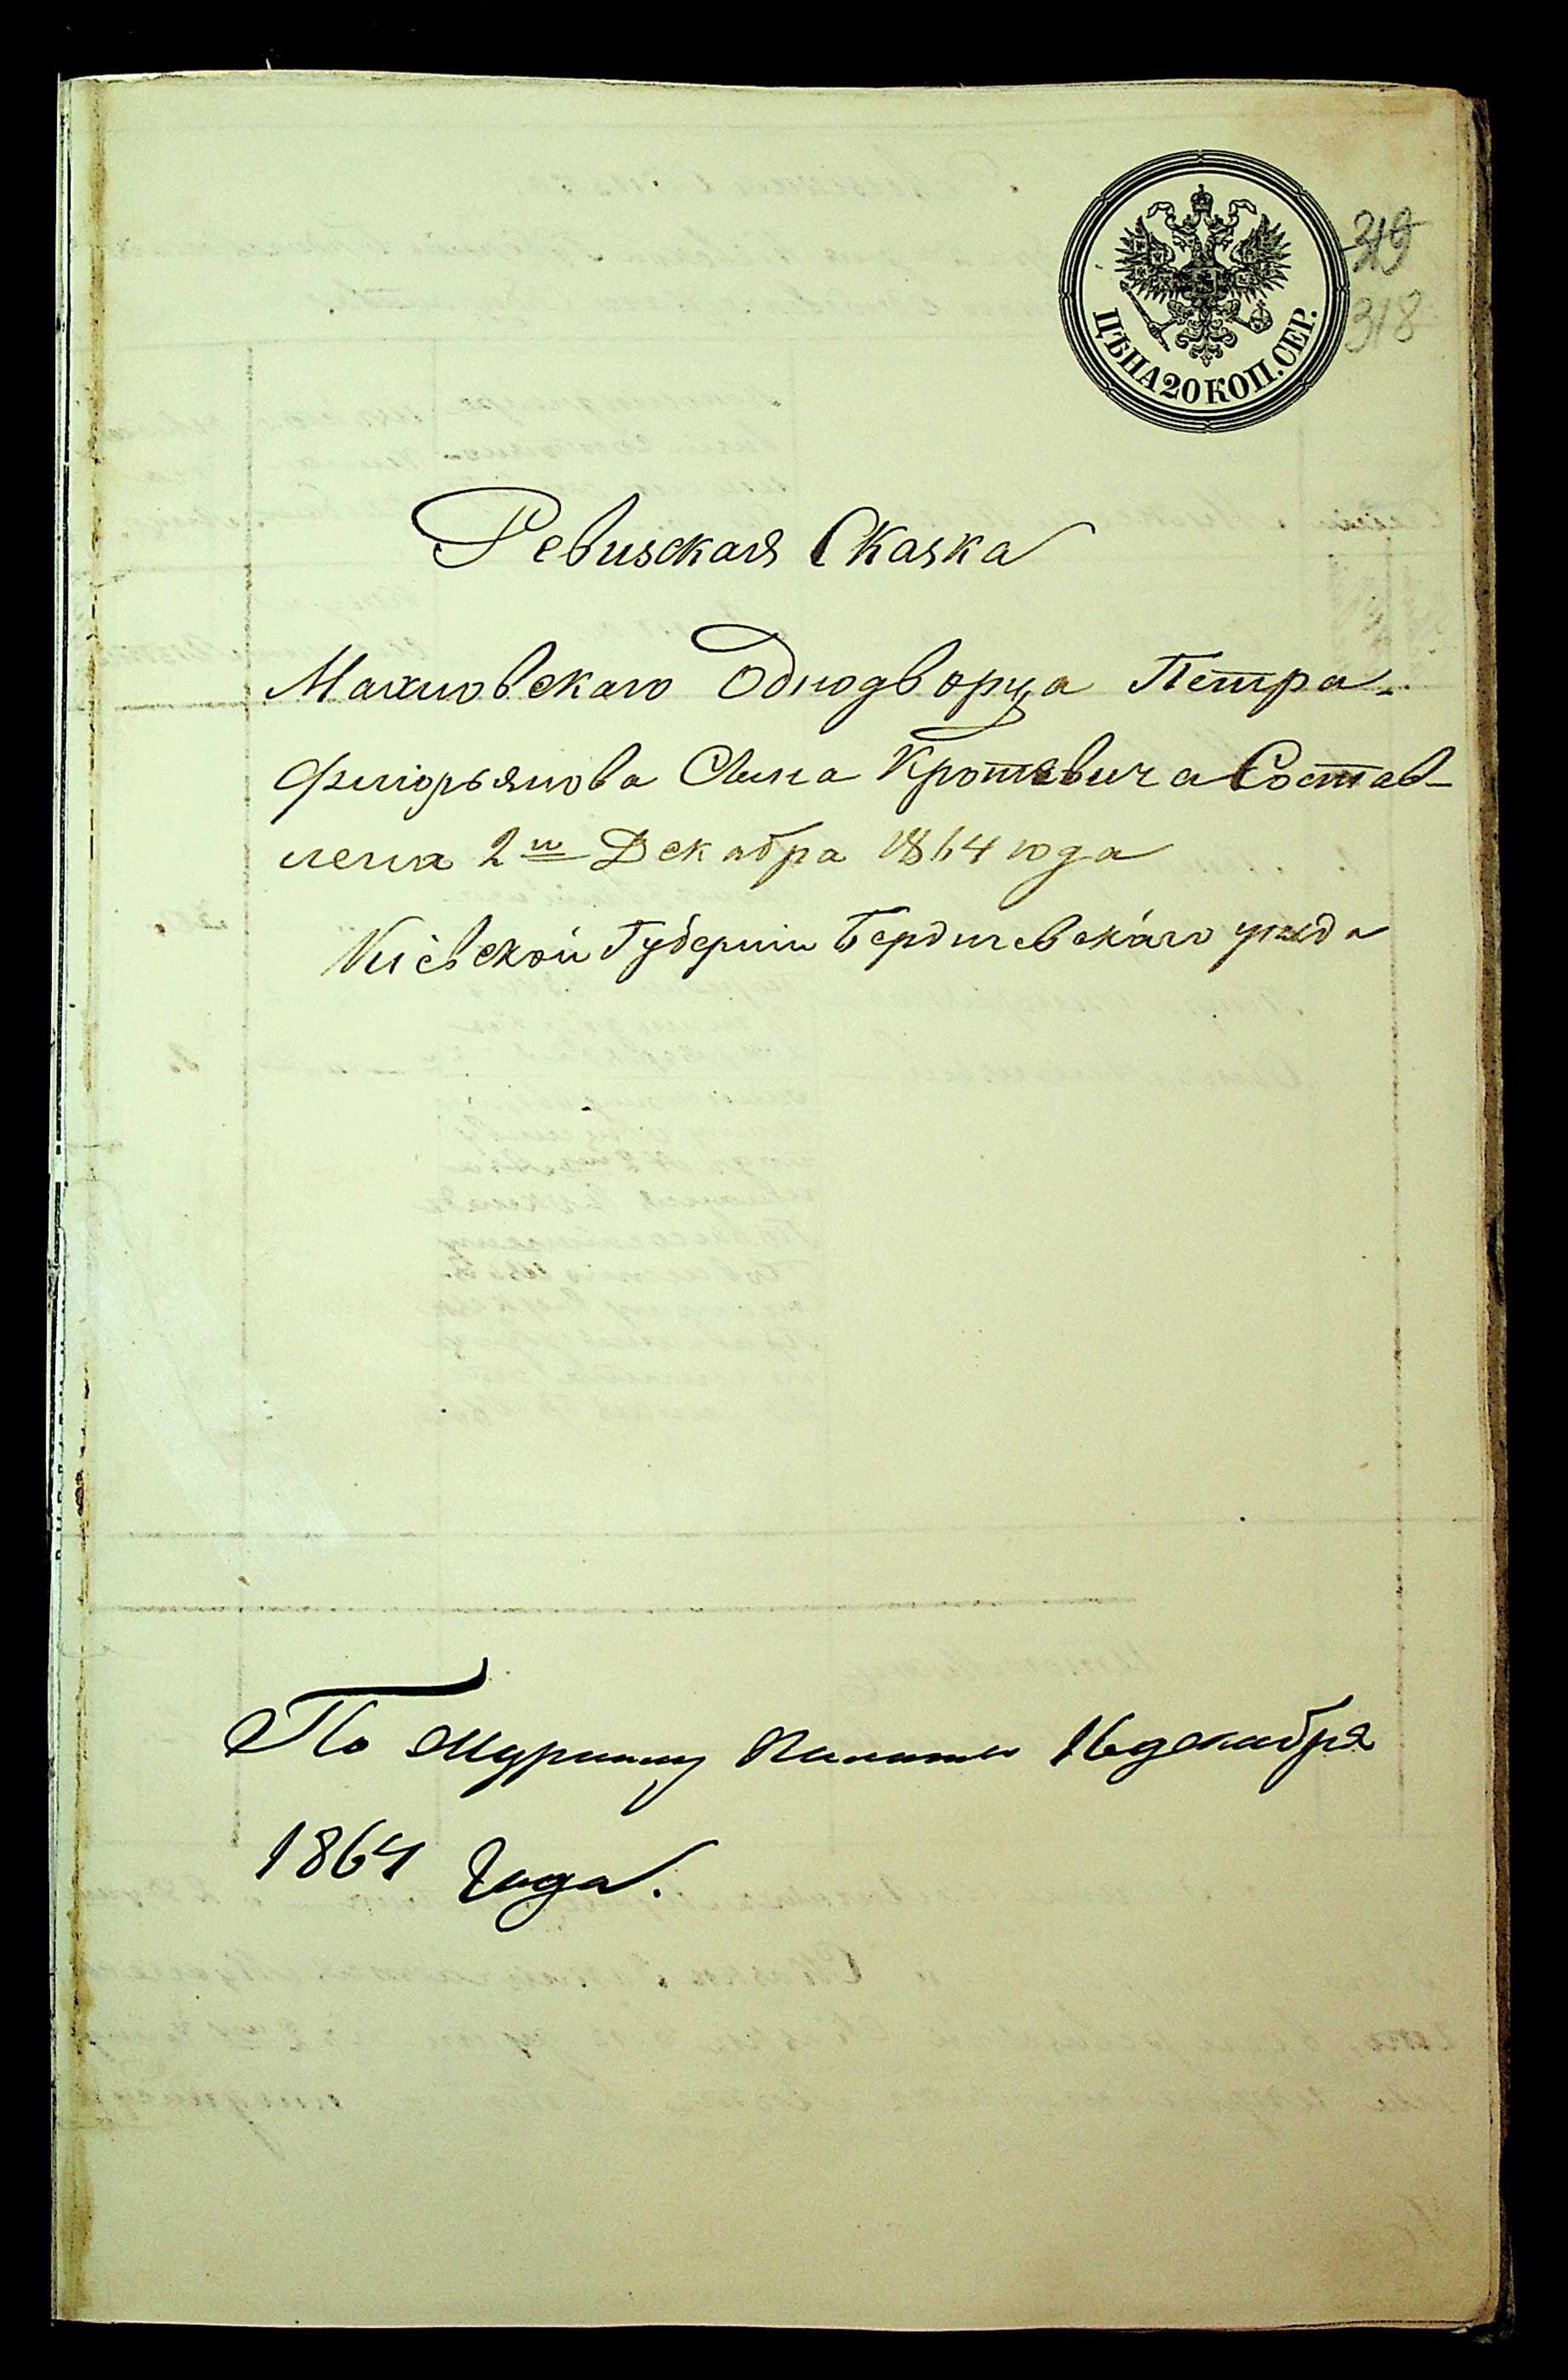 ЦѢНА 20 КОП. СЕР.
319
318
Ревизская Сказка
Махновскаго Однодворца Петра
Флiорьянова Сына Кротевича Состав-
лена 2го Декабря 1864 года
Кiевской Губернiи Бердичевскаго уѣзда
По журналу Палаты 16 декабря
1864 Года.